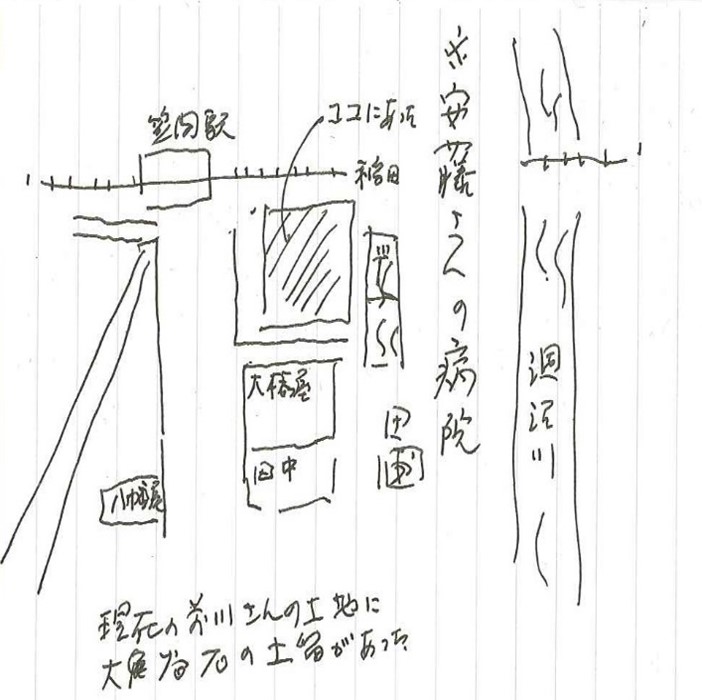 ※安藤さんの病院
ココにあった
笠間駅
稲田
涸沼川
大橋屋
田中
田
園
八幡屋
現在の芥川さんの土地に
大谷石の土留があった